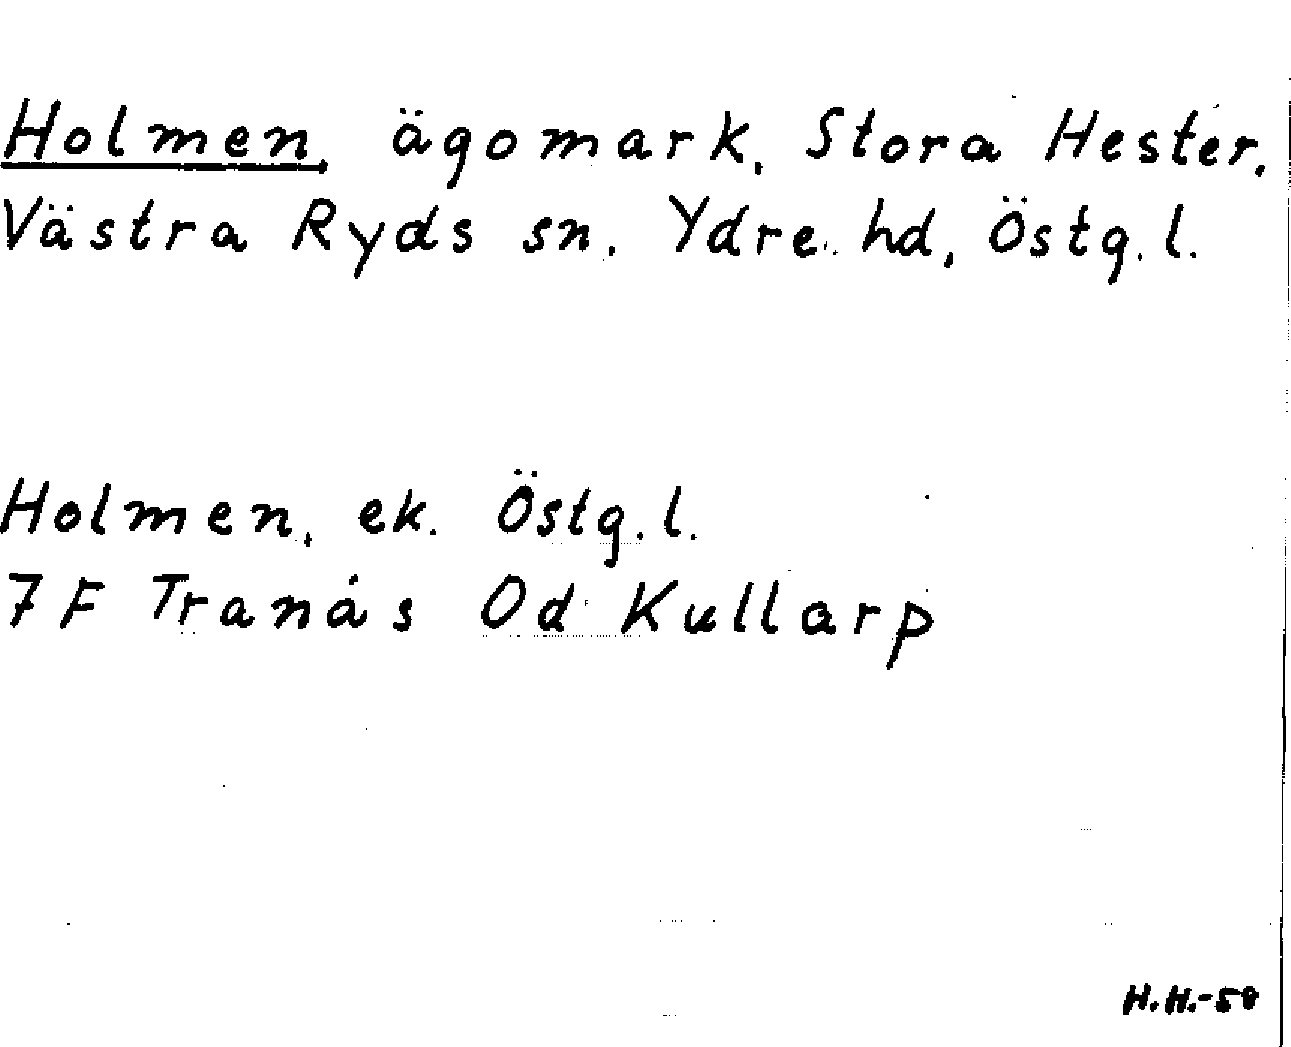 Holmen, ägomark, Stora Hester,
Västra Ryds sn. Ydre hd, Östg. l.
Holmen, ek. Östg. l.
7 F Tranås 0d Kullarp
H.H.-58